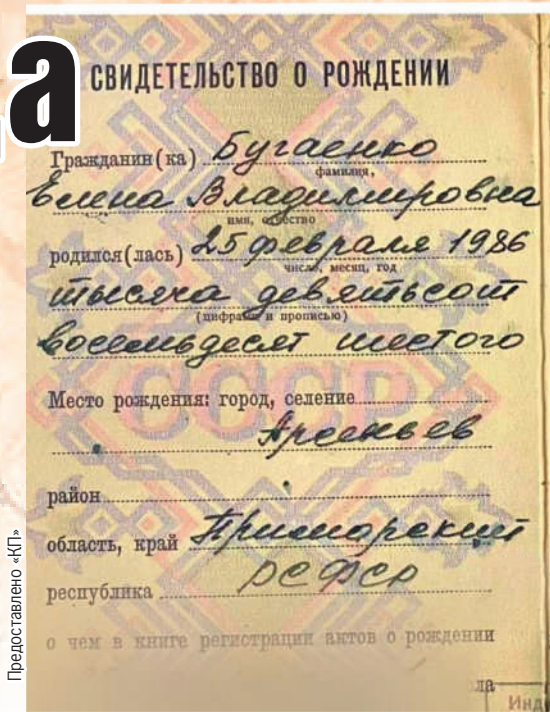 а
СВИДЕТЕЛЬСТВО О РОЖДЕНИИ
Гражданин(ка) Бугаенко
фамилия,
Елена Владимировна
имя, отчество
родился(лась) 25 февраля 1986
число, месяц, год
тысяча девятьсот
(цифрами и прописью)
восемьдесят шестого
СССР
Место рождения: город, селение
Арсеньев
район
область, край Приморский
республика РСФСР
о чем в книге регистрации актов о рождении
Предоставлено «КП»